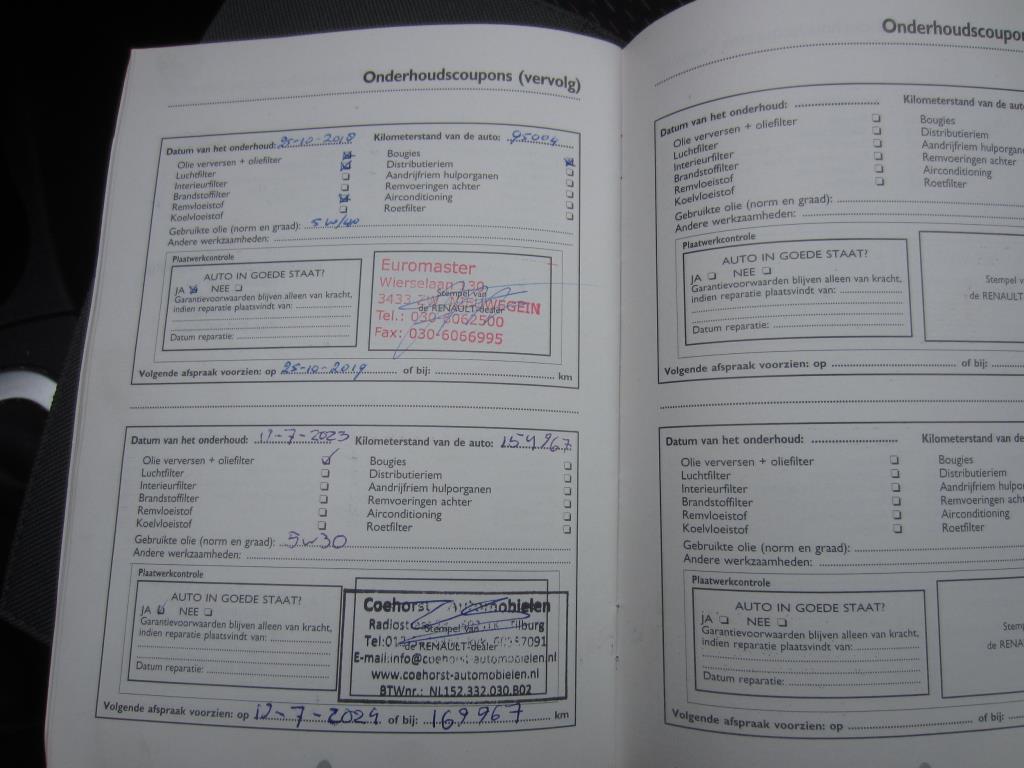 Onderhoudscoupons (vervolg)
Datum van het onderhoud: 25-10-2018 Kilometerstand van de auto: 95004
Olie verversen + oliefilter Bougies
Luchtfilter Distributieriem
Interieurfilter Aandrijfriem hulporganen
Brandstoffilter Remvoeringen achter
Remvloeistof Airconditioning
Koelvloeistof Roetfilter
Gebruikte olie (norm en graad): 5w/40
Andere werkzaamheden:
Plaatwerkcontrole
AUTO IN GOEDE STAAT?
JA NEE
Garantievoorwaarden blijven alleen van kracht,
indien reparatie plaatsvindt van:
Datum reparatie:
Euromaster
Wierselaan 130
Stempel van
3433 NIEUWEGEIN
de RENAULT-dealer
Tel.: 030-6062500
Fax: 030-6066995
Volgende afspraak voorzien: op 25-10-2019 of bij: km
Datum van het onderhoud: 12-7-2023 Kilometerstand van de auto: 154967
Olie verversen + oliefilter Bougies
Luchtfilter Distributieriem
Interieurfilter Aandrijfriem hulporganen
Brandstoffilter Remvoeringen achter
Remvloeistof Airconditioning
Koelvloeistof Roetfilter
Gebruikte olie (norm en graad): 5w30
Andere werkzaamheden:
Plaatwerkcontrole
AUTO IN GOEDE STAAT?
JA NEE
Garantievoorwaarden blijven alleen van kracht,
indien reparatie plaatsvindt van:
Datum reparatie:
Coehorst Automobielen
Tilburg
Stempel van
de RENAULT-dealer
E-mail:info@coehorst-automobielen.nl
www.coehorst-automobielen.nl
BTWnr.: NL152.332.030.B02
Volgende afspraak voorzien: op 12-7-2024 of bij: 169967 km
Onderhoudscoupon
Datum van het onderhoud: Kilometerstand van de aut
Olie verversen + oliefilter Bougies
Luchtfilter Distributieriem
Interieurfilter Aandrijfriem hulporgane
Brandstoffilter Remvoeringen achter
Remvloeistof Airconditioning
Koelvloeistof Roetfilter
Gebruikte olie (norm en graad):
Andere werkzaamheden:
Plaatwerkcontrole
AUTO IN GOEDE STAAT?
JA NEE
Garantievoorwaarden blijven alleen van kracht,
indien reparatie plaatsvindt van:
Datum reparatie:
Stempel v
de RENAULT
Volgende afspraak voorzien: op of bij:
Datum van het onderhoud: Kilometerstand van de
Olie verversen + oliefilter Bougies
Luchtfilter Distributieriem
Interieurfilter Aandrijfriem hulporga
Brandstoffilter Remvoeringen achter
Remvloeistof Airconditioning
Koelvloeistof Roetfilter
Gebruikte olie (norm en graad):
Andere werkzaamheden:
Plaatwerkcontrole
AUTO IN GOEDE STAAT?
JA NEE
Garantievoorwaarden blijven alleen van kracht,
indien reparatie plaatsvindt van:
Datum reparatie:
Stemp
de RENA
Volgende afspraak voorzien: op of bij: